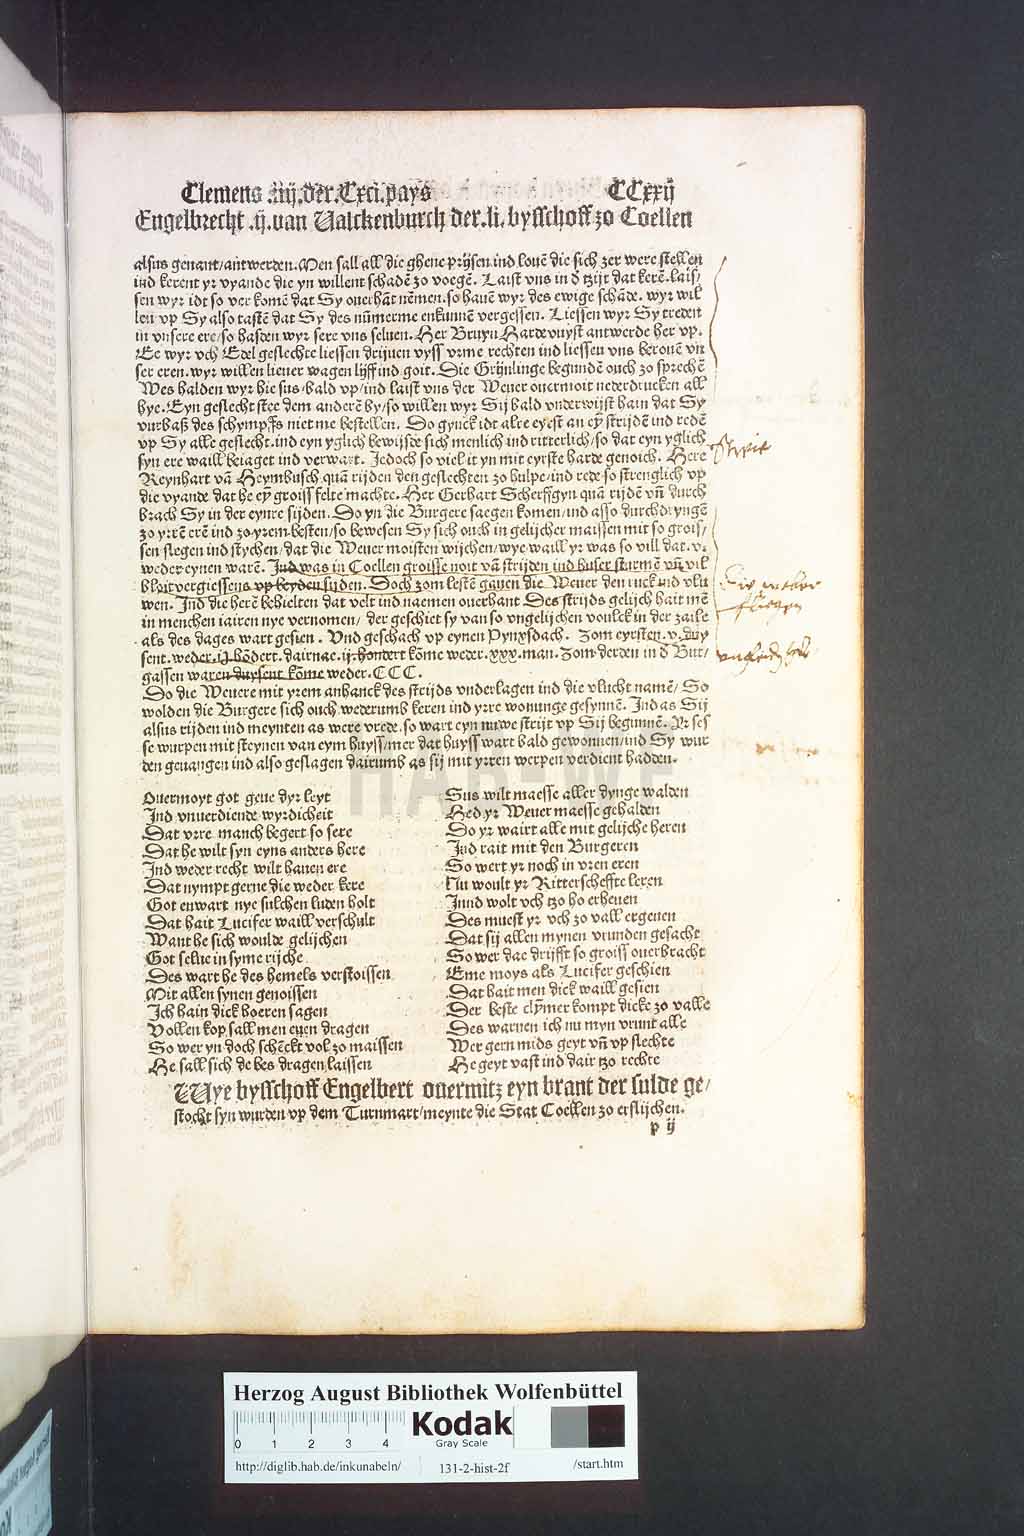 Clemens .iiij. der. Cxci. pays CCxxij
Engelbrecht .ij. van Valckenburch der .li. bysschoff zo Coellen
alsus genant/antwerden. Men sall all die ghene prijsen ind louē die sich zer were stellen
ind kerent yr vyande die yn willent schadē zo voegē. Laist vns in d tzijt dat kerē. lais/
sen wyr idt so ver komē dat Sy ouerhāt nēmen. so hauē wyr des ewige schāde. wyr wil
len vp Sy also tastē dat Sy des nūmerme enkunnē vergessen. Liessen wyr Sy treden
in vnsere ere/so hassden wyr sere vns seluen. Her Bruyn Hardevuyst antwerde her vp.
Ee wyr vch Edel geslechte liessen drijuen vyss vrme rechten ind liessen vns berouē vn
ser eren. wyr willen lieuer wagen lijff ind goit. Die Grijnlinge begundē ouch zo sprechē
Wes halden wyr hie sus/bald vp/ind laist vns der Weuer ouermoit nederdrucken all
hye. Eyn geslecht stee dem anderē by/so willen wyr Sij bald vnderwijst hain dat Sy
vurbaß des schympffs niet me bestellen. Do gynck idt alre eyrst an eȳ strijdē ind redē
vp Sy alle geslecht. ind eyn yglich bewijsde sich menlich ind ritterlich/so dat eyn yglich
syn ere waill beiaget ind verwart. Jedoch so viel it yn mit eyrste harde genoich. Here
Reynhart vā Heymbusch quā rijden den geslechten zo hulpe/ind rede so strenglich vp
die vyande dat he eȳ groiss felte machte. Her Gerhart Scherffgyn quā rijdē vñ durch
brach Sy in der eynre sijden. Do yn die Burgere saegen komen/ind also durchdryngē
zo yrrē erē ind zo yrem besten/so bewesen Sy sich ouch in gelijcher maissen mit so grois/
sen slegen ind stychen/dat die Weuer moisten wijchen/wye waill yr was so vill dat .v.
weder eynen warē. Ind was in Coellen groisse noit vā strijden ind huser sturmē vñ vil
bloitvergiessens vp beyden sijden. Doch zom lestē gauen die Weuer den ruck ind vlu
wen. Ind die herē behielten dat velt ind naemen ouerhant Des strijds gelijch hait mē
in menchen iairen nye vernomen/ der geschiet sy van so vngelijchen voulck in der zaile
als des dages wart gesien. Vnd geschach vp eynen Pynxsdach. Zom eyrsten .v. duy
sent. weder .ij. hōdert. dairnae .ij. hondert kōme weder .xxx. man. Zom derden in d Bur/
gassen waren duysent kōme weder .CCC.
Do die Weuere mit yrem anhanck des strijds vnderlagen ind die vlucht namē/ So
wolden die Burgere sich ouch wederumb keren ind yrre wonunge gesynnē. Ind as Sij
alsus rijden ind meynten as were vrede. so wart eyn nuwe strijt vp Sij begunnē. Yr ses
se wurpen mit steynen van eym huyss/mer dat huyss wart bald gewonnen/ind Sy wur
den geuangen ind also geslagen dairumb as sij mit yrren werpen verdient hadden.
Ouermoyt got geue dyr leyt
Ind vnuerdiende wyrdicheit
Dat vrre manch begert so sere
Dat he wilt syn eyns anders here
Ind weder recht wilt hauen ere
Dat nympt gerne die weder kere
Got enwart nye sulchen luden holt
Dat hait Lucifer waill verschult
Want he sich woulde gelijchen
Got seluc in syme rijche
Des wart he des hemels verstoissen
Mit allen synen genoissen
Ich hain dick hoeren sagen
Vollen kop sall men euen dragen
So wer yn doch schēckt vol zo maissen
He sall sich de bes dragen laissen
Sus wilt maesse aller dynge walden
Hed yr Weuer maesse gehalden
Do yr wairt alle mit gelijche heren
Ind rait mit den Burgeren
So wert yr noch in vren eren
Nu woult yr Ritterscheffte leren
Innd wolt vch tzo ho erheuen
Des muest yr vch zo vall ergeuen
Dat sij allen mynen vrunden gesacht
So wer dae drijfft so groiss ouerbracht
Eme moys als Lucifer geschien
Dat hait men dick waill gesien
Der beste clȳmer kompt dicke zo valle
Des warnen ich nu myn vrunt alle
Wer gern mids geyt vñ vp slechte
He geyt vast ind dair tzo rechte
Wye bysschoff Engelbert ouermitz eyn brant der sulde ge/
stocht syn wurden vp dem Turnmart/meynte die Stat Coellen zo erslijchen.
p ij
Herzog August Bibliothek Wolfenbüttel
0 1 2 3 4
Kodak
Gray Scale
http://diglib.hab.de/inkunabeln/ 131-2-hist-2f /start.htm